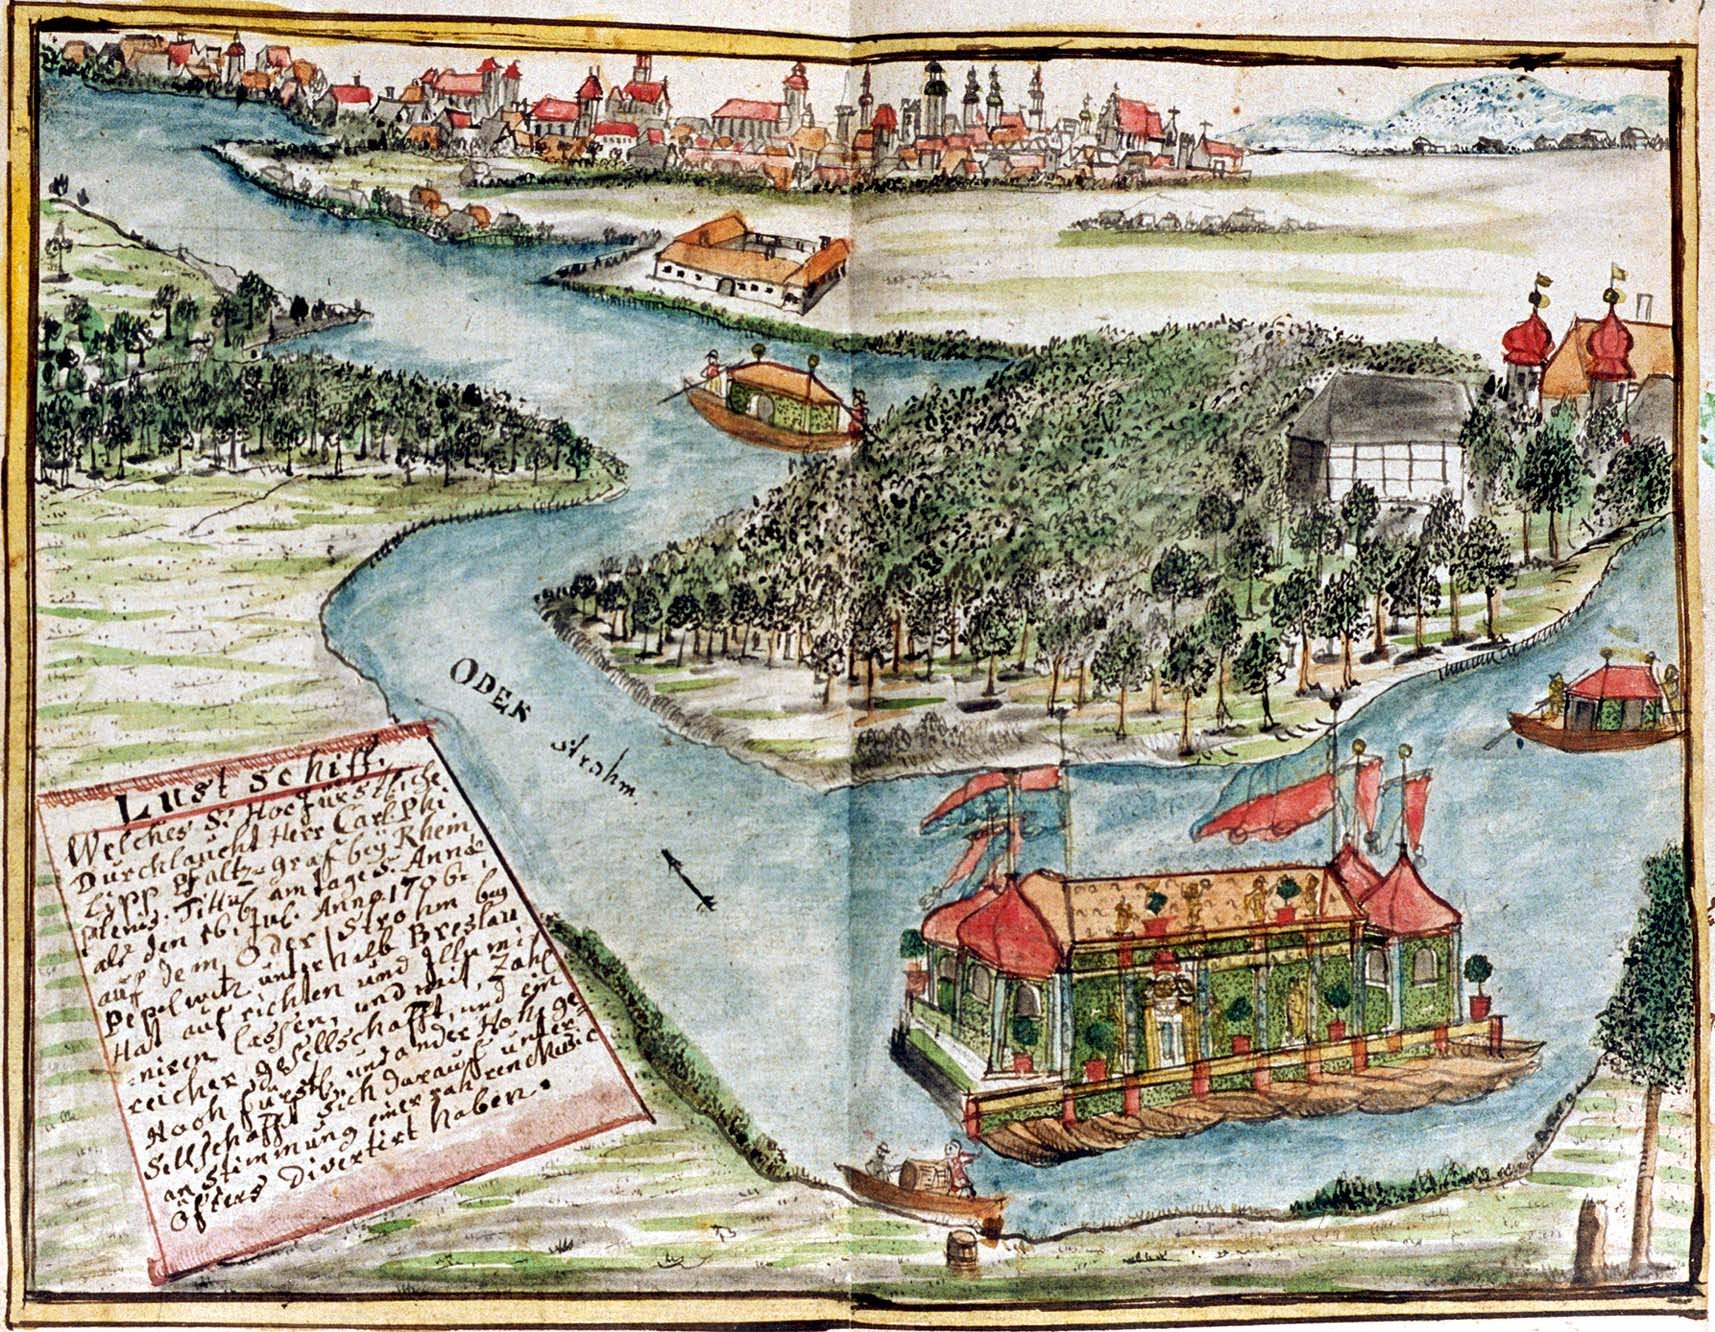 ODER Strohm.
LUst Schiff,
Welches Sr HocFürstliche
Durchlaucht Herr Carl Phi
Lipp Pfaltz-graf beÿ Rhein
plenis. Tittul am tage S. Anna,
als den 26 Jul. Anno. 1706.
auf dem Oder Strohm beÿ
Pepelwitz unterhalb Breslau
Hat auf richten und Illumi
niren lassen, und mit, Zahl
reicher gsellschafft, und ein
Hoch fürstl. und ander Hohe ge-
sellschafft sich darauf unter
anstimmung einer rahren Music
öfters divertirt haben.